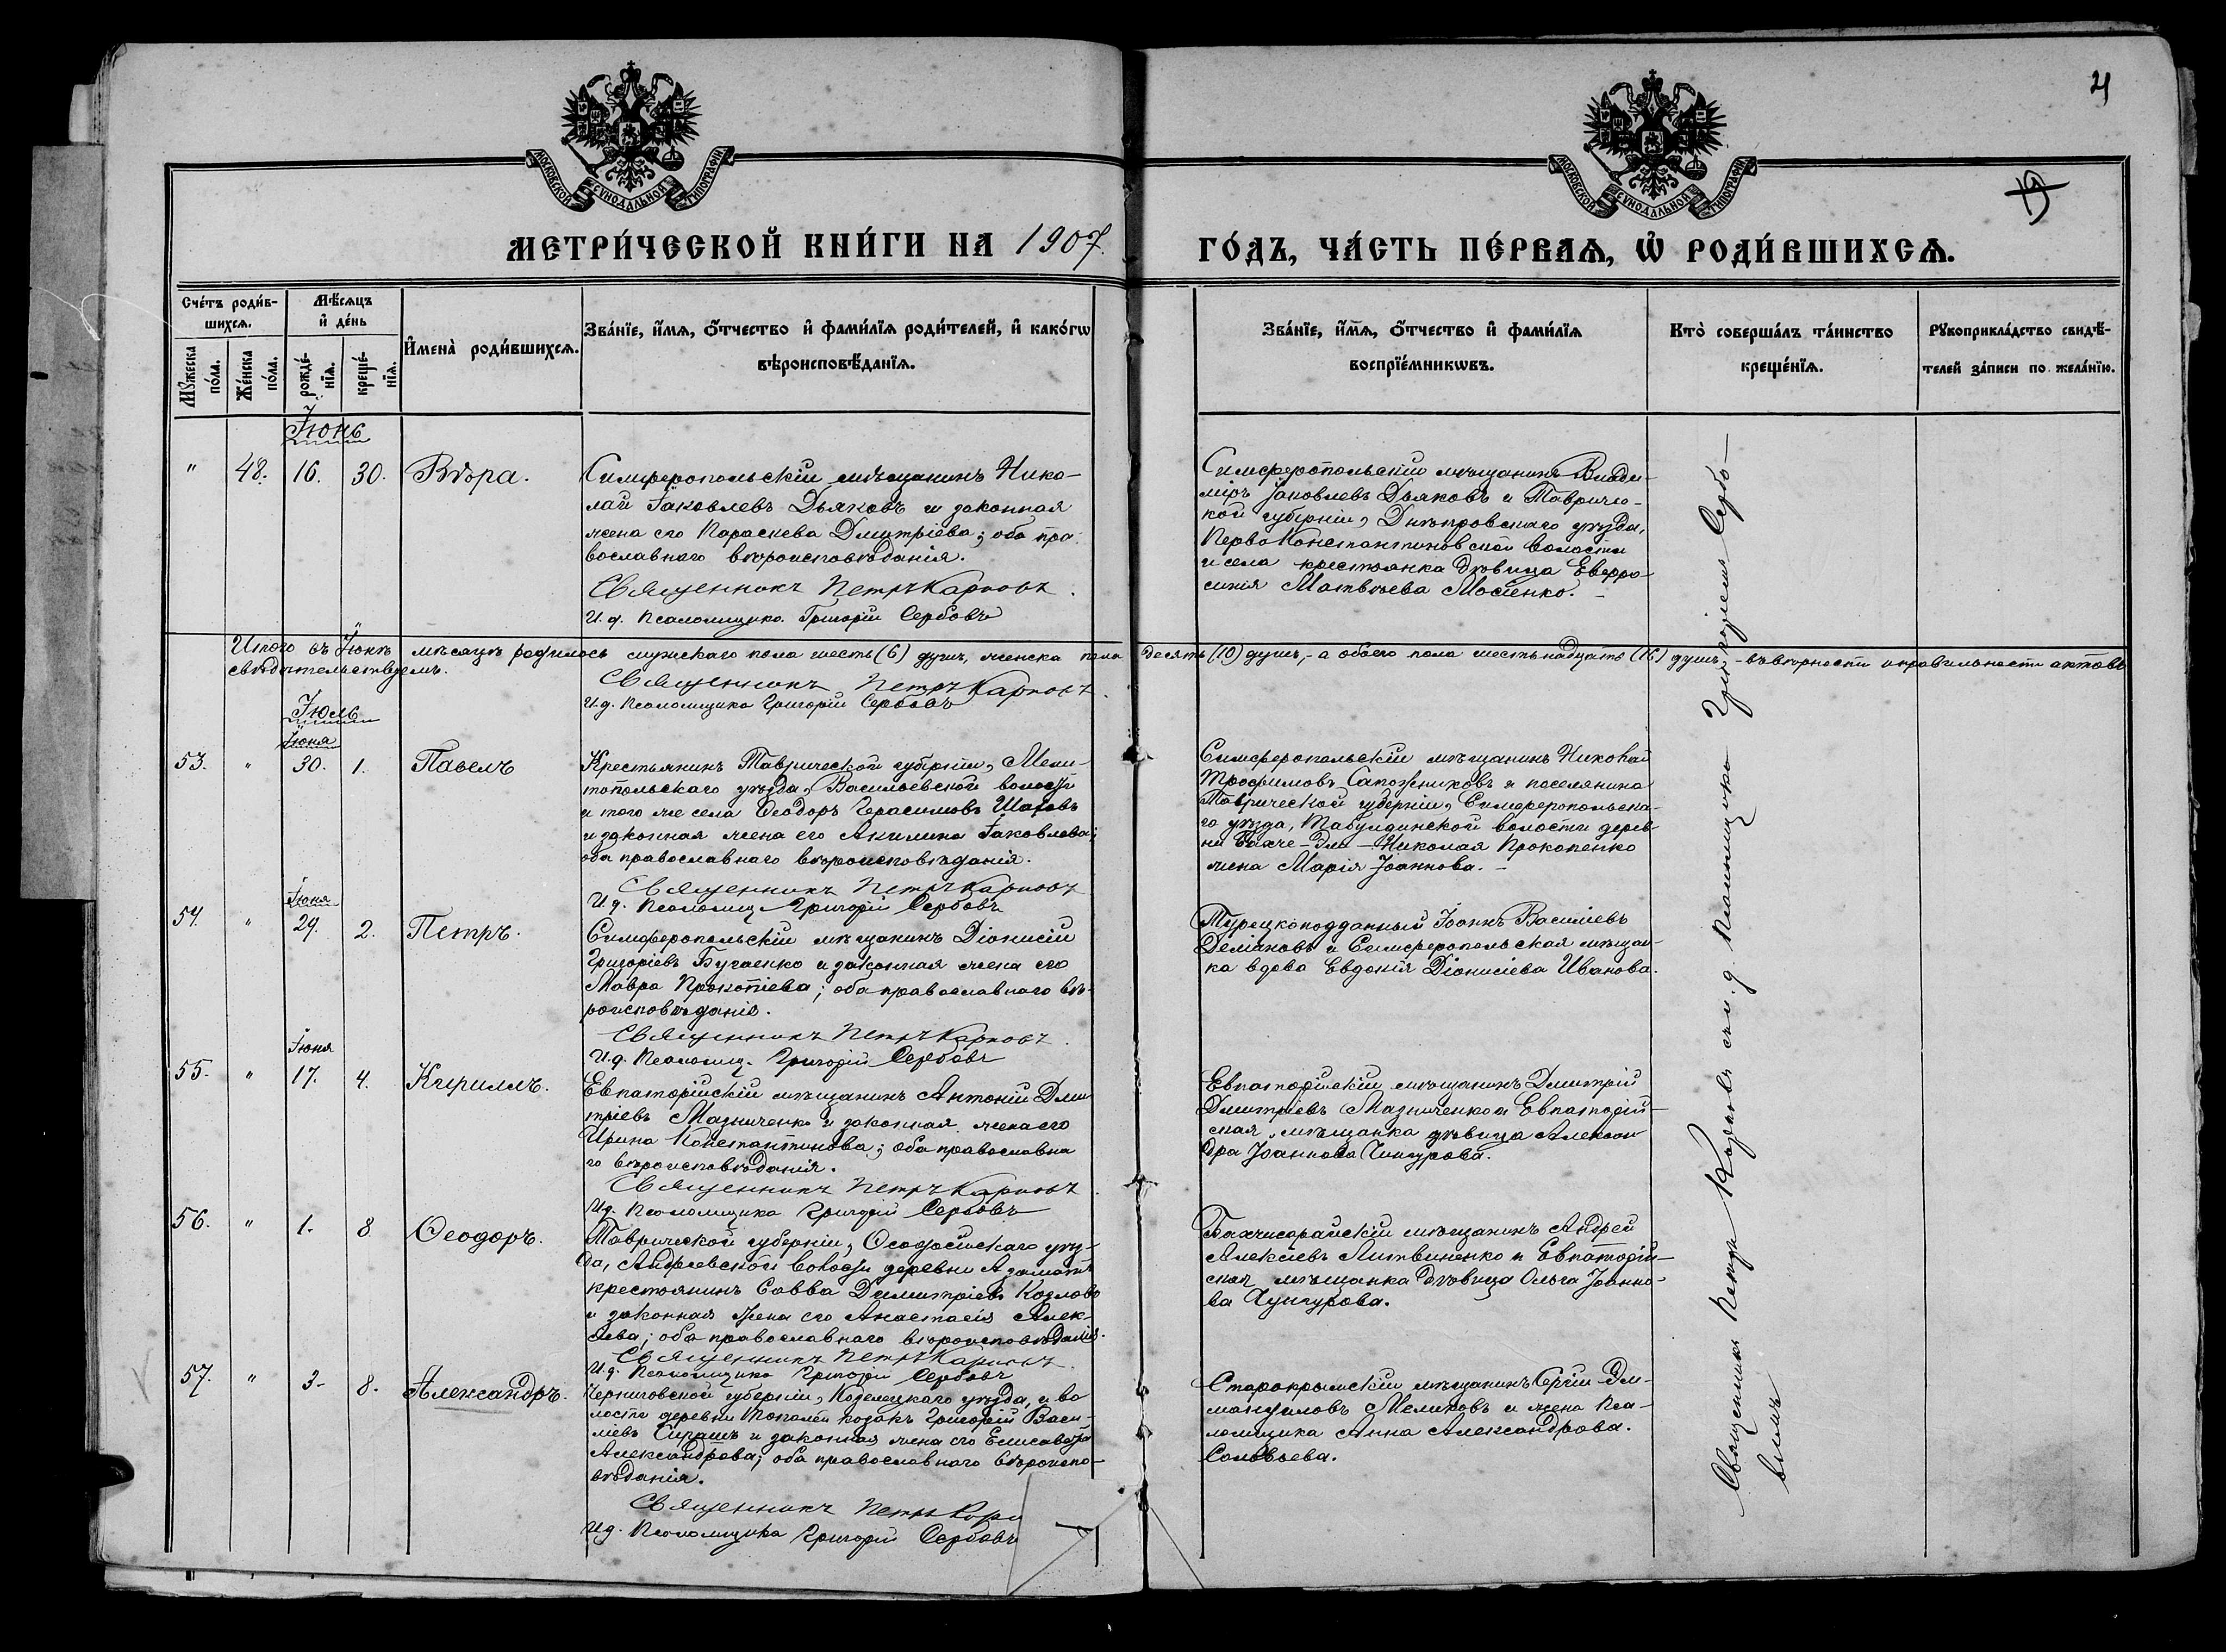 21
МОСКОВСКОЙ СѴНОДАЛЬНОЙ ТИПОГРАФІИ
МОСКОВСКОЙ СѴНОДАЛЬНОЙ ТИПОГРАФІИ
19
МЕТРИ́ЧЕСКОЙ КНИ́ГИ НА 1907.
ГО́ДЪ, ЧА́СТЬ ПЕ́РВАѦ, Ѡ҆ РОДИ́ВШИХСѦ.
Сче́тъ роди́в-
шихсѧ.
Мѣ́сѧцъ
и҆ де́нь
Мꙋ́жеска
по́ла.
Же́нска
по́ла.
рожде́-
нїѧ.
креще́-
нїѧ.
И҆мена̀ роди́вшихсѧ.
Зва́нїе, и҆́мѧ, ѻ҆́тчество и҆ фами́лїѧ роди́телей, и҆ како́гѡ
вѣроисповѣ́данїѧ.
Зва́нїе, и҆́мѧ, ѻ҆́тчество и҆ фами́лїѧ
воспрїе́мникѡвъ.
Кто̀ соверша́лъ та́инство
креще́нїѧ.
Рꙋкоприкла́дство свидѣ́-
телей за́писи по жела́нїю.
Іюнь
" 48. 16. 30. Вѣра.
Симферопольскій мѣщанинъ Нико-
лай Іаковлевъ Дьяковъ и законная
жена его Параскева Дмитріева; оба пра-
вославнаго вѣроисповѣданія.
Священникъ Петръ Карповъ.
И. д. псаломщика Григорій Сербовъ
Симферопольскій мѣщанинъ Влади-
міръ Іаковлевъ Дьяковъ и Тавричес-
кой губерніи, Днѣпровскаго уѣзда,
Перво Константиновской волости
и села крестьянка дѣвица Евфро-
синія Матвѣева Мосіенко. –
Итого въ Іюнѣ мѣсяцѣ родилось мужскаго пола шесть (6) душъ, женска пола десять (10) душъ, - а обоего пола шестьнадцать (16) душъ, - въ вѣрности и правильности актовъ
свидѣтельствуемъ.
Священникъ Петръ Карповъ.
И. д. псаломщика Григорій Сербовъ
Іюль
Іюня
53. " 30. 1. Павелъ
Крестьянинъ Таврической губерніи, Мели-
топольскаго уѣзда, Васильевской волости
и того же села Ѳеодоръ Герасимовъ
и законная жена его Акилина Іаковлева;
оба православнаго вѣроисповѣданія.
Священникъ Петръ Карповъ
И. д. псаломщ. Григорій Сербовъ
Симферопольскій мѣщанинъ Николай
Трофимовъ Сапожниковъ и поселянина
Таврической губерніи, Симферопольска-
го уѣзда, Табулдинской волости дерев-
ни Бахче-Эли - Николая Прокопенко
жена Марія Іоаннова. –
Іюня
54. " 29. 2. Петръ.
Симферопольскій мѣщанинъ Діонисій
Григоріевъ Бугаенко и законная жена его
Мавра Прокопіева; оба православнаго вѣ-
роисповѣданія.
Священникъ Петръ Карповъ.
И. д. псаломщ. Григорій Сербовъ
Турецкоподданный Іоаннъ Василіевъ
Деміановъ и Симферопольская мѣщан-
ка вдова Евдокія Діонисіева Иванова.
Іюня
55. " 17. 4. Кириллъ.
Евпаторійскій мѣщанинъ Антоній Дми-
тріевъ Мазниченко и законная жена его
Ирина Константинова; оба православна
го вѣроисповѣданія.
Священникъ Петръ Карповъ.
И. д. псаломщика Григорій Сербовъ
Евпаторійскій мѣщанинъ Дмитрій
Дмитріевъ Мазниченко и Евпаторій-
ская мѣщанка дѣвица Алексан-
дра Іоаннова Чингурова.
56. " 1. 8 Ѳеодоръ.
Таврической губерніи, Ѳеодосійскаго уѣз-
да, Андреевской волости деревни Азаматъ
крестьянинъ Савва Димитріевъ Козловъ
и законная жена его Анастасія Алек-
сѣева; оба православнаго вѣроисповѣданія.
Священникъ Петръ Карповъ.
И. д. псаломщика Григорій Сербовъ
Бахчисарайскій мѣщанинъ Андрей
Алексѣевъ Литвиненко и Евпаторій-
ская мѣщанка дѣвица Ольга Іоанно-
ва Чунгурова.
57. " 3. 8. Александръ.
Черниговской губерніи, Козелецкаго уѣзда, и во
лости деревни козакъ Григорій Васи-
лievъ и законная жена его Елисавета
Александрова; оба православнаго вѣроиспо-
вѣданія.
Священникъ Петръ
И. д. псаломщика Григорій Сербовъ
Старокрымскій мѣщанинъ Сергій Эм-
мануиловъ Меликовъ и жена пса-
ломщика Анна Александрова
Соловьева.
Священникъ Петръ Карповъ съ и. д. псаломщика Григоріемъ Сербо-
вымъ